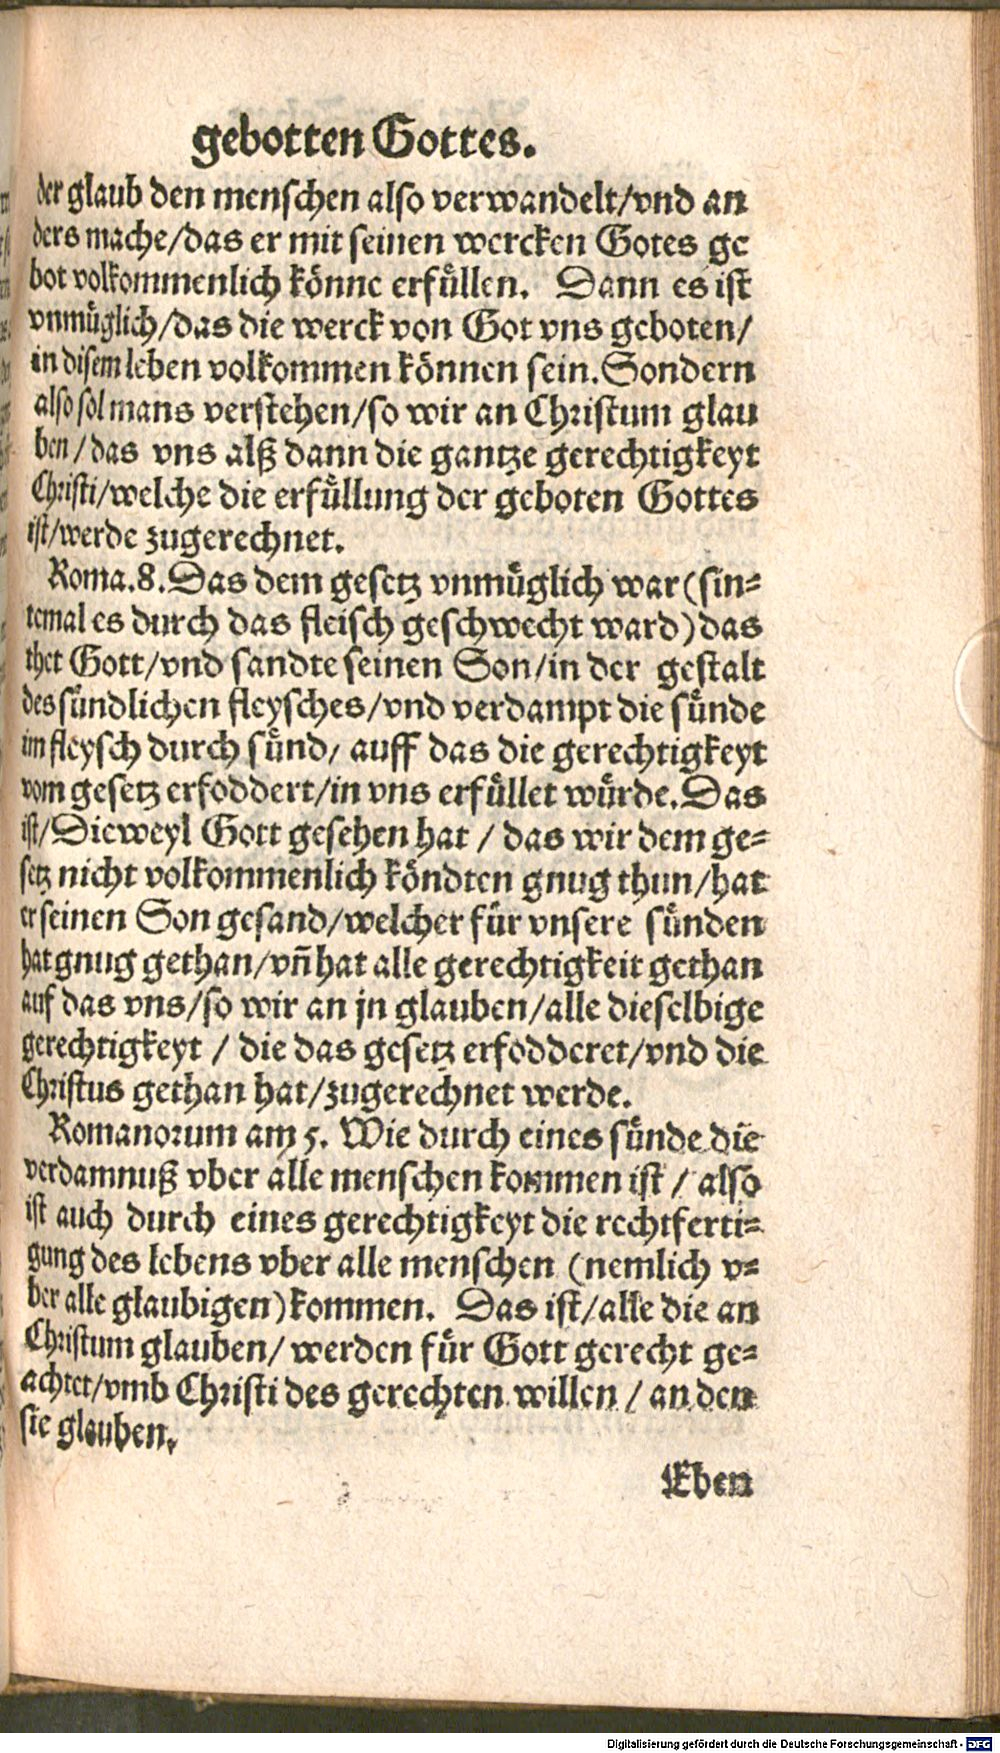 gebotten Gottes.
der glaub den menschen also verwandelt/vnd an
ders mache/das er mit seinen wercken Gotes ge
bot volkommenlich könne erfüllen. Dann es ist
vnmüglich/das die werck von Got vns geboten/
in disem leben volkommen können sein. Sondern
also sol mans verstehen/so wir an Christum glau
ben/das vns alß dann die gantze gerechtigkeyt
Christi/welche die erfüllung der geboten Gottes
ist/werde zugerechnet.
Roma.8. Das dem gesetz vnmüglich war (sin=
temal es durch das fleisch geschwecht ward) das
thet Gott/vnd sandte seinen Son/in der gestalt
des sündlichen fleysches/vnd verdampt die sünde
im fleysch durch sünd/ auff das die gerechtigkeyt
vom gesetz erfoddert/in vns erfüllet würde. Das
ist/Dieweyl Gott gesehen hat / das wir dem ge=
setz nicht volkommenlich köndten gnug thun/hat
er seinen Son gesand/welcher für vnsere sünden
hat gnug gethan/vñ hat alle gerechtigkeit gethan
auf das vns/so wir an jn glauben/alle dieselbige
gerechtigkeyt / die das gesetz erfodderet/vnd die
Christus gethan hat/zugerechnet werde.
Romanorum am 5. Wie durch eines sünde die
verdamnuß vber alle menschen kommen ist / also
ist auch durch eines gerechtigkeyt die rechtferti=
gung des lebens vber alle menschen (nemlich v=
ber alle glaubigen) kommen. Das ist/alle die an
Christum glauben/ werden für Gott gerecht ge=
achtet/vmb Christi des gerechten willen / an den
sie glauben.
Eben
Digitalisierung gefördert durch die Deutsche Forschungsgemeinschaft - DFG